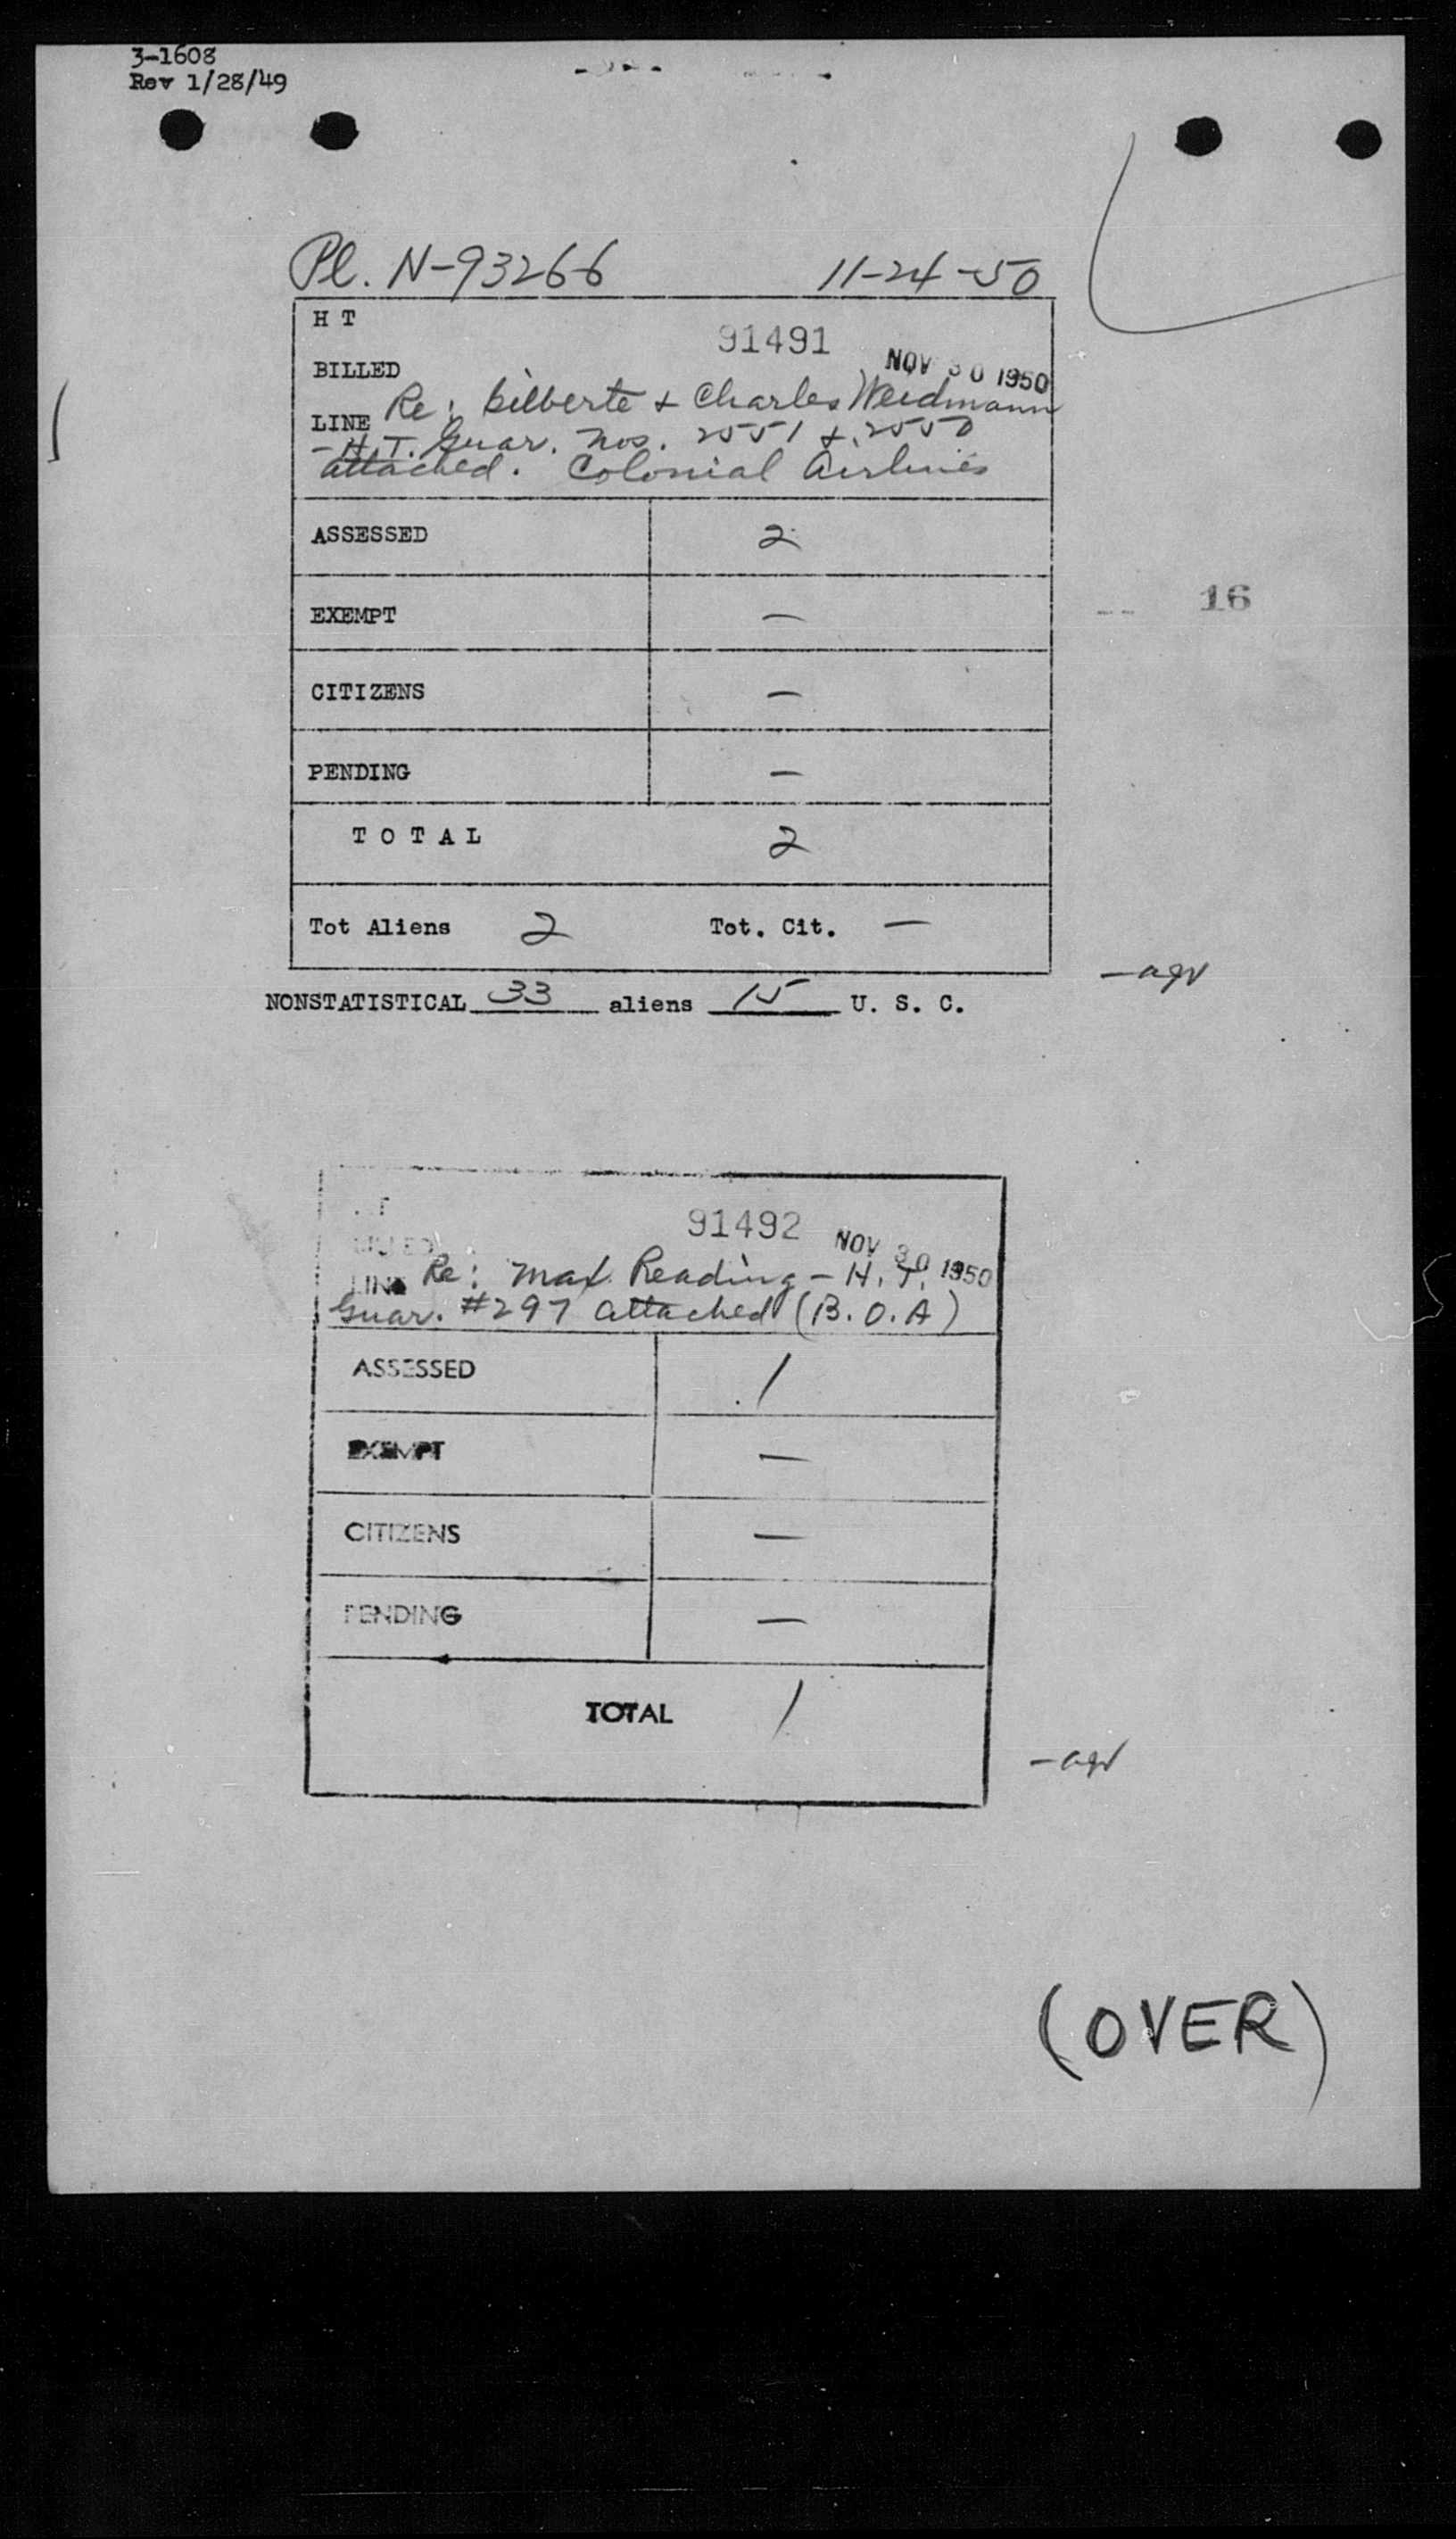 3-1608
Rev 1/28/49
Pl. N-93266 11-24-50
H T
91491
BILLED NOV 30 1950
Re: Gilberte & Charles Weidmann
LINE
- H.T. Guar. Nos. 2551 & 2550
attached. Colonial Airlines
ASSESSED 2
EXEMPT —
16
CITIZENS —
PENDING —
T O T A L 2
Tot Aliens 2 Tot. Cit. —
NONSTATISTICAL 33 aliens 15 U. S. C.
91492 NOV 30 1950
LINE Re: Max Reading - H. T.
Guar. #297 attached (B.O.A)
ASSESSED 1
EXEMPT —
CITIZENS —
PENDING —
TOTAL 1
(OVER)